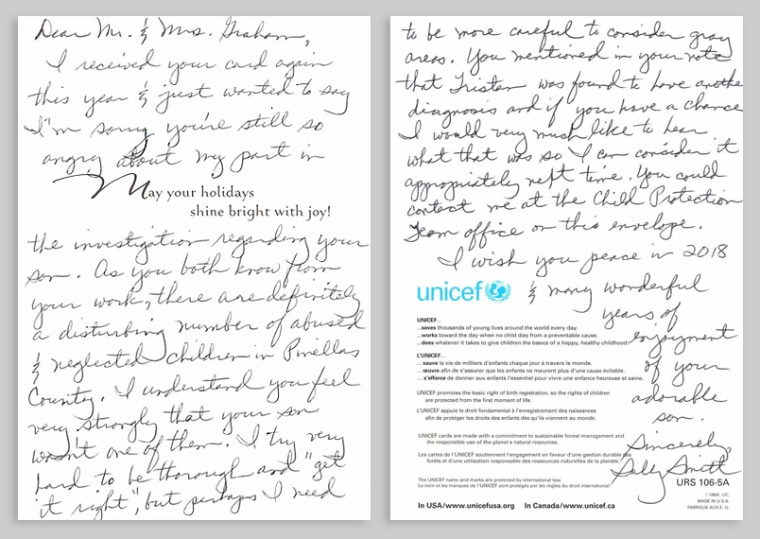 Dear Mr. & Mrs. Graham,
I received your card again
this year & just wanted to say
I'm sorry you're still so
angry about my part in
May your holidays
shine bright with joy!
the investigation regarding your
son. As you both know from
your work, there are definitely
a disturbing number of abused
& neglected children in Pinellas
County. I understand you feel
very strongly that your son
wasn't one of them. I try very
hard to be thorough and "get
it right", but perhaps I need
to be more careful to consider gray
areas. You mentioned in your note
that Tristan was found to have another
diagnosis and if you have a chance
I would very much like to hear
what that was so I can consider it
appropriately next time. You could
contact me at the Child Protection
Team office on this envelope.
I wish you peace in 2018
& many wonderful
years of
enjoyment
of your
adorable
son.
Sincerely,
Sally Smith
unicef
UNICEF...
...saves thousands of young lives around the world every day.
...works toward the day when no child dies from a preventable cause.
...does whatever it takes to give children the basics of a happy, healthy childhood.
L'UNICEF...
... sauve la vie de milliers d'enfants chaque jour à travers le monde.
... œuvre afin de s'assurer que les enfants ne meurent plus d'une cause évitable.
... s'efforce de donner aux enfants l'essentiel pour vivre une enfance heureuse et saine.
UNICEF promotes the basic right of birth registration, so the rights of children
are protected from the first moment of life.
L'UNICEF appuie le droit fondamental à l'enregistrement des naissances
afin de protéger les droits des enfants dès qu'ils viennent au monde.
UNICEF cards are made with a commitment to sustainable forest management and
the responsible use of the planet's natural resources.
Les cartes de l'UNICEF soutiennent l'engagement en faveur d'une gestion durable des
forêts et d'une utilisation responsable des ressources naturelles de la planète.
The UNICEF name and marks are protected by international law.
Le nom et les marques de l'UNICEF sont protégés par les règles du droit international.
URS 106-5A
MADE IN U.S.A.
FABRIQUÉ AUX É.-U.
In USA/www.unicefusa.org In Canada/www.unicef.ca